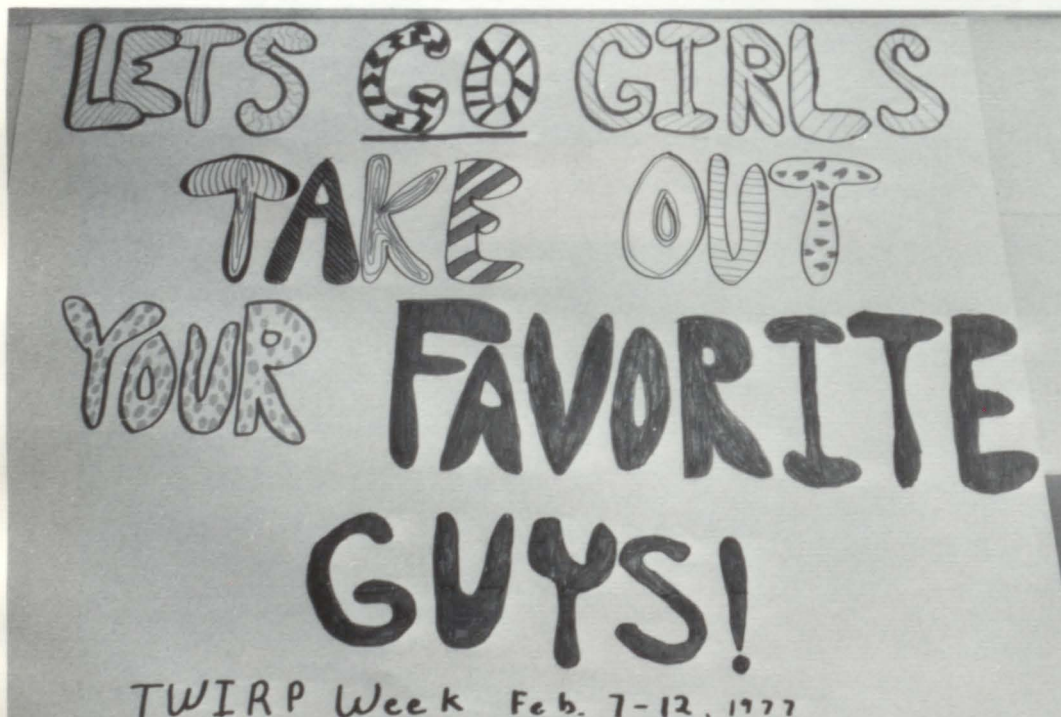 LETS GO GIRLS
TAKE OUT
YOUR FAVORITE
GUYS!
TWIRP Week Feb. 7-12, 1977